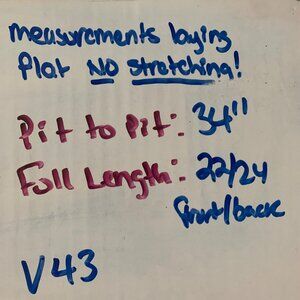 measurements laying
flat NO stretching!
Pit to Pit: 34"
Full Length: 22/24
front/back
V43